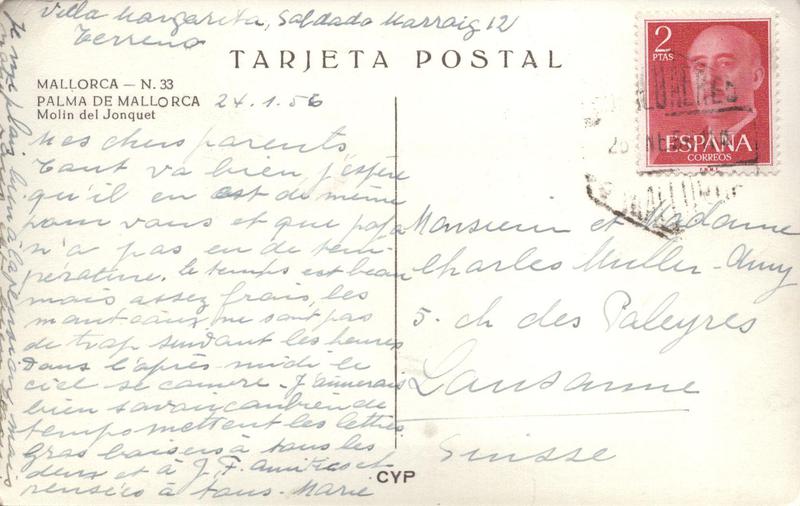 Villa Margarita, Saldado Marroig 12
Terreno
TARJETA POSTAL
MALLORCA — N. 33
PALMA DE MALLORCA
Molin del Jonquet
24.1.56
Mes chers parents
Tout va bien, j'espère
qu'il en est de même
pour vous et que papa
n'a pas eu de tem-
pérature. le temps est beau
mais assez frais, les
manteaux ne sont pas
de trop suivant les heures
Dans l'après-midi le
ciel se couvre. J'aimerais
bien savoir combien de
temps mettent les lettres
Gros baisers à tous les
deux et à J. F. amitiés et
pensées à tous. Marie
CYP
2
PTAS
ESPAÑA
CORREOS
MALLORCA
Monsieur et Madame
Charles Muller-Amy
5. ch des Paleyres
Lausanne
Suisse